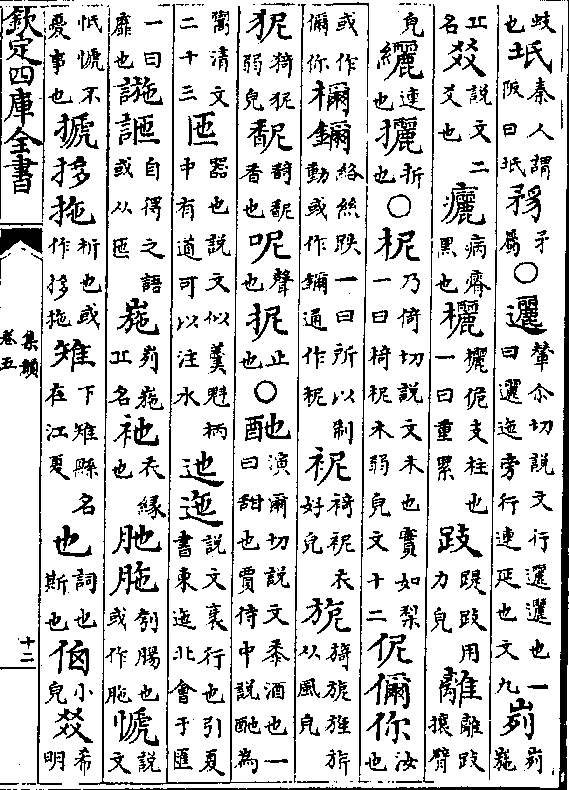 歧也坁秦人謂阪曰坁矛屬○邐輦尒切說文行邐邐也一曰邐迤旁行連延也文九峛峛崺
山名㸚說文二爻也病瘠黑也欐欐佹支柱也一曰重累跂踶跂用力皃離離跂攘臂
皃纚連也攦折也○柅乃倚切說文木也實如梨一曰椅柅木弱皃文十二伲儞你汝也
或作儞你檷鑈絡絲趺一曰所以制動或作鑈通作柅衣好皃旎旖旎旌旂从風皃
狔猗狔弱皃馜馜香也呢聲也抳止也○酏演爾切說文黍酒也一曰甜也賈侍中說酏為
鬻清文二十三匜器也說文似羹魁柄中有道可以注水迆迤說文衺行也引夏書東迤北會于匯
一曰靡也自得之語或从匜崺峛崺山名衪衣緣也胣刳腸也或作㦹說文
忯㦹不憂事也搋拸拖析也或作拸拖雉下雉縣名在江夏也詞也斯也小皃㸚希明
欽定四庫全書
集韻
卷五
十二